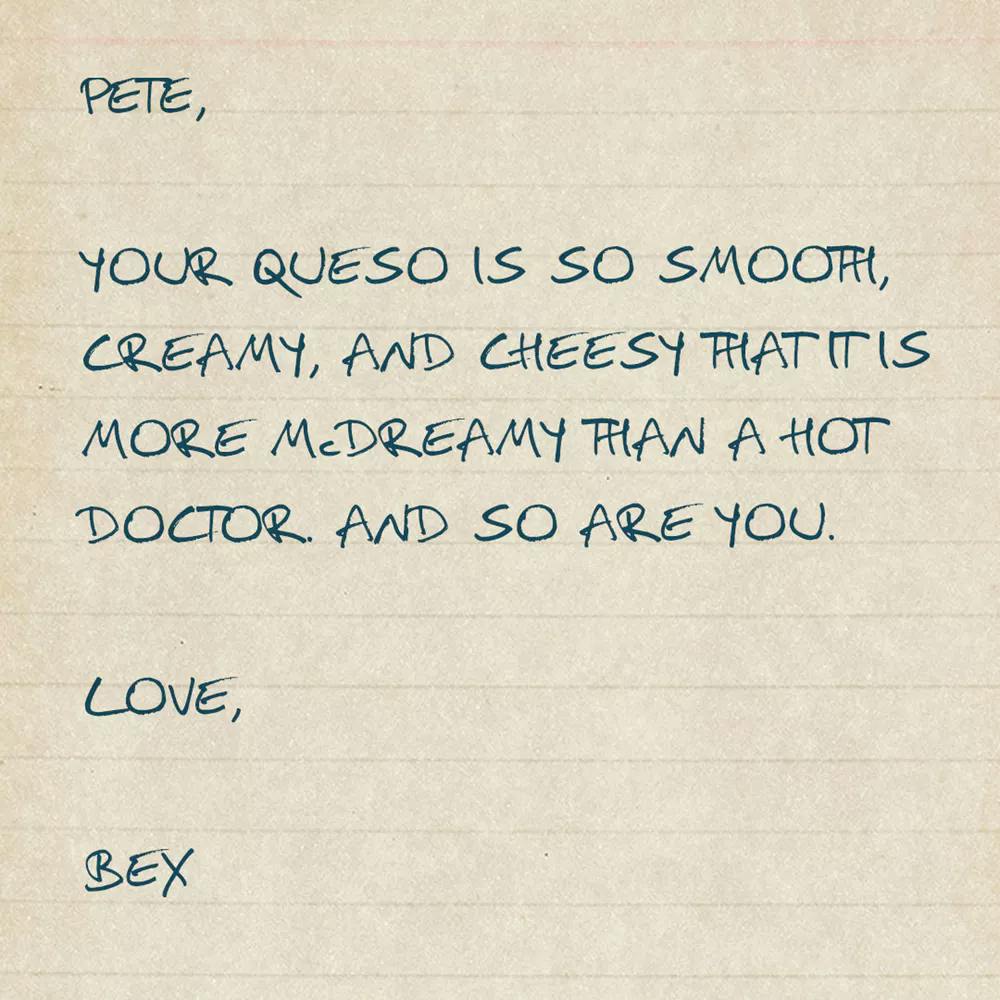 PETE,
YOUR QUESO IS SO SMOOTH,
CREAMY, AND CHEESY THAT IT IS
MORE McDREAMY THAN A HOT
DOCTOR. AND SO ARE YOU.
LOVE,
BEX